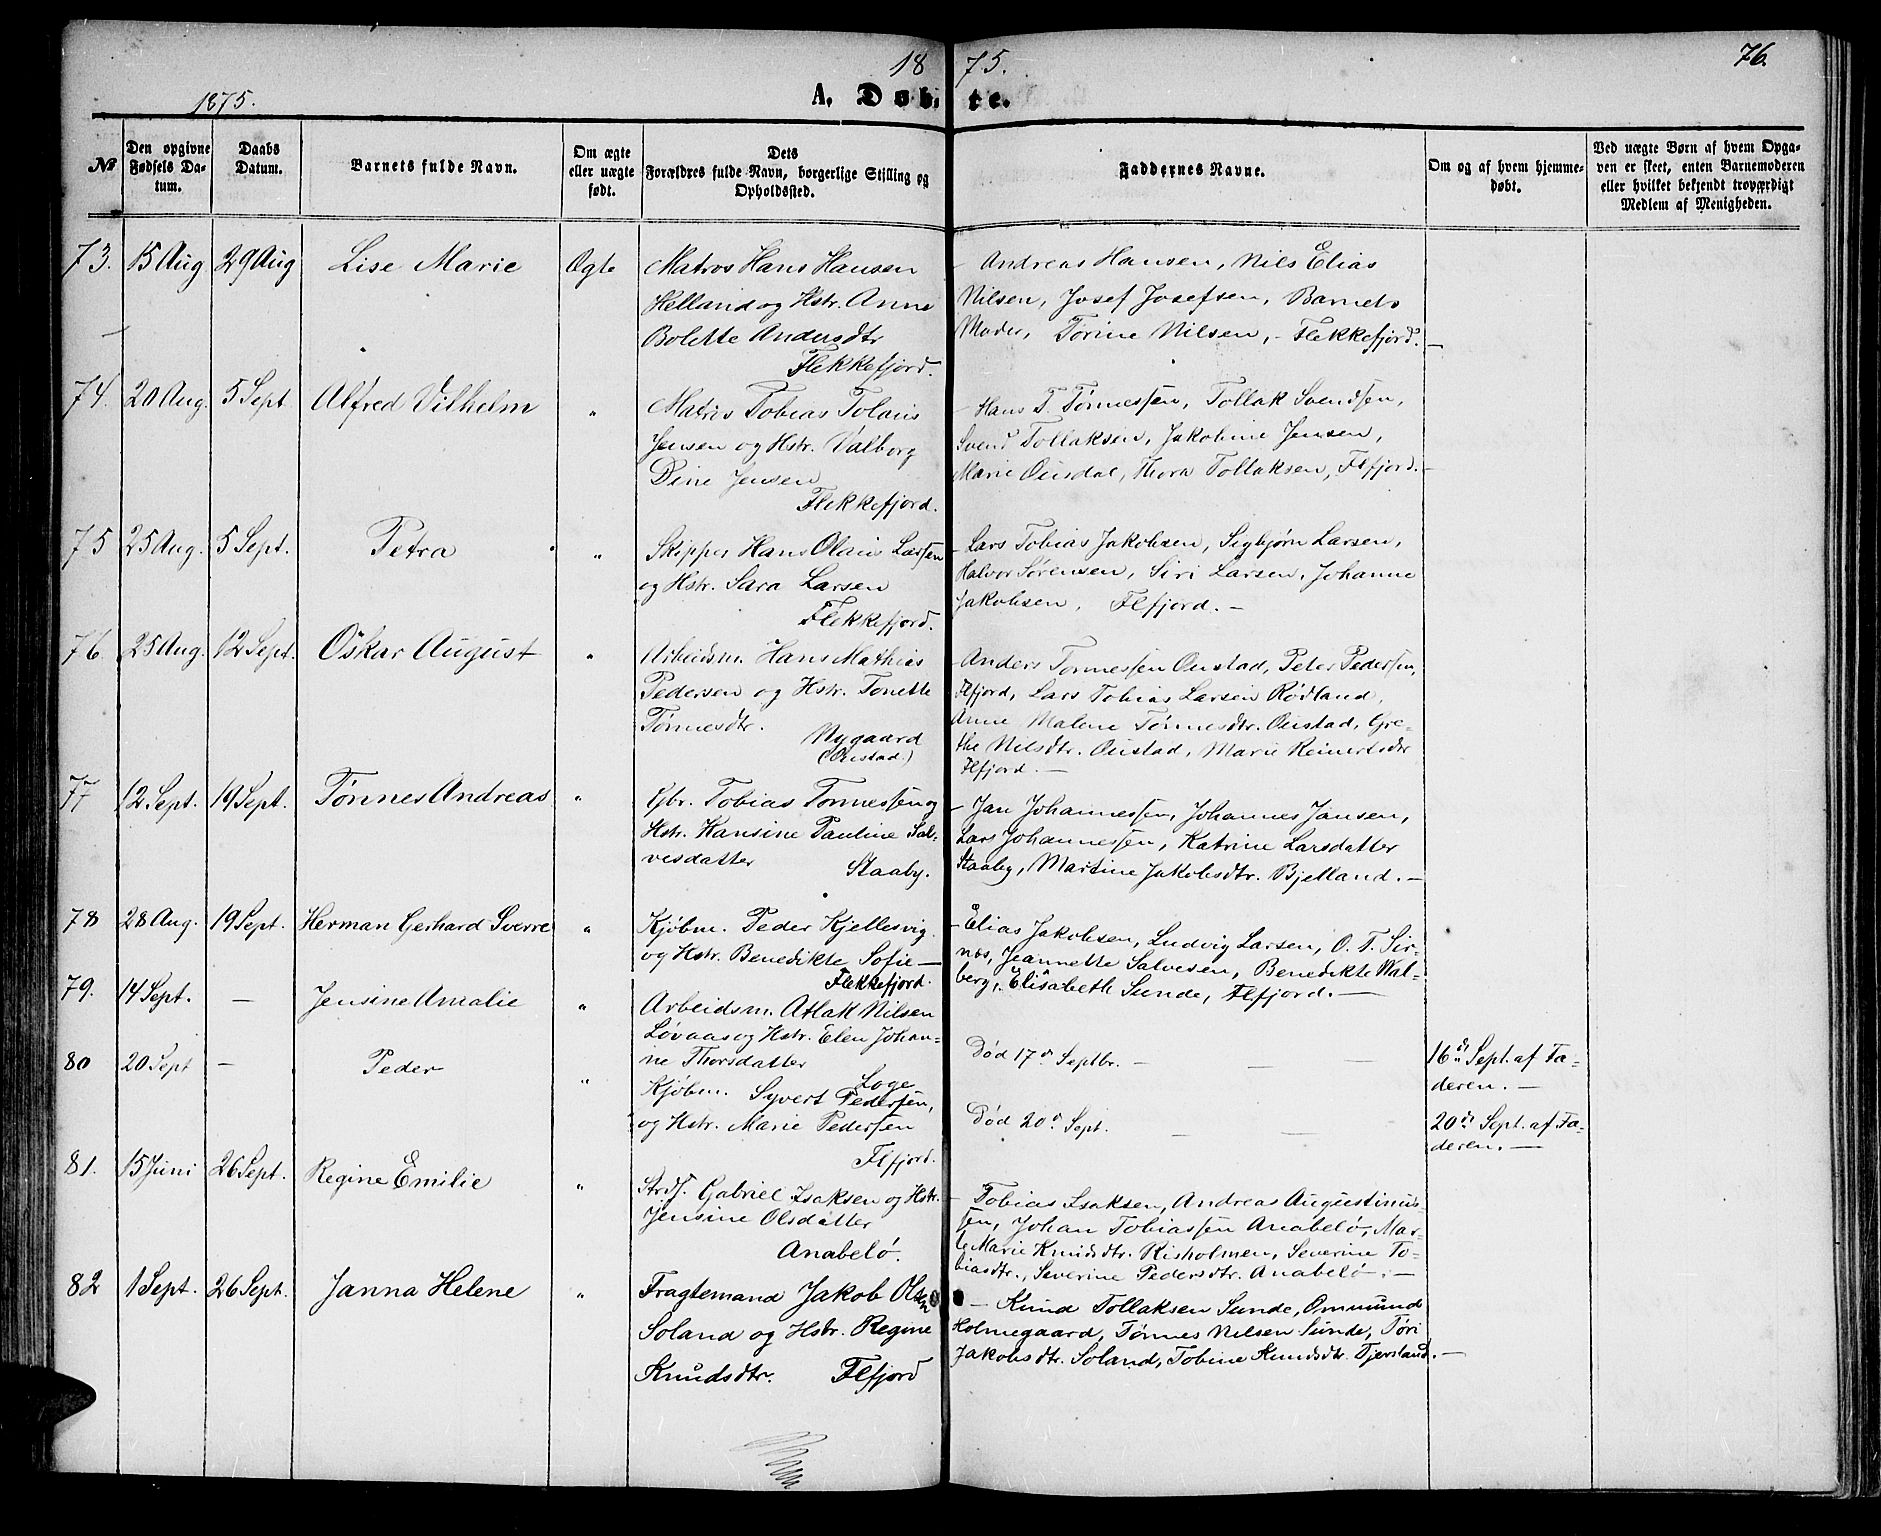 18 75. 76.
1875. A. Døbte.
№ | Den opgivne Fødsels Datum. | Daabs Datum. | Barnets fulde Navn. | Om ægte eller uægte født. | Dets Forældres fulde Navn, borgerlige Stilling og Opholdssted. | Faddernes Navne. | Om og af hvem hjemmedøbt. | Ved uægte Børn af hvem Opgaven er skeet, enten Barnemoderen eller hvilket bekjendt troværdigt Medlem af Menigheden.
73. 15 Aug 29 Aug Lise Marie Ægte Matros Hans Hansen
Helland og Hstr. Anne
Bolette Andersdtr
Flekkefjord.
– Andreas Hansen, Nils Elias
Nilsen, Josef Josefsen, Barnets
Moder, Torine Nilsen, – Flekkefjord. –
74. 20 Aug. 5 Sept Alfred Vilhelm " Matros Tobias Tolais
Jensen og Hstr. Valborg
Dine Jensen
Flekkefjord.
– Hans T. Tønnessen, Tollak Svendsen,
Svend Tollaksen, Jakobine Jensen,
Marie Ousdal, Thora Tollaksen, Flfjord. –
75 25 Aug. 5 Sept. Petra " Skipper Hans Olai Larsen
og Hstr. Sara Larsen
Flekkefjord.
– Lars Tobias Jakobsen, Sigbjørn Larsen,
Halvor Sørensen, Siri Larsen, Johanne
Jakobsen, Flfjord. –
76. 25 Aug. 12 Sept. Oskar August " Arbeidsm. Hans Mathias
Pedersen og Hstr. Tonette
Tønnesdtr.
Nygaard
(Oustad.)
– Anders Tønnessen Oustad, Peter Pedersen,
Flfjord, Lars Tobias Larsen Rødland,
Anne Malene Tønnesdtr. Oustad, Gre-
the Nilsdtr. Oustad, Marie Reinertsdtr
Flfjord. –
77 12 Sept. 19 Sept. Tønnes Andreas " Gbr. Tobias Tønnessen og
Hstr. Hansine Pauline Sal-
vesdatter
Staaby.
– Jan Johannessen, Johannes Jansen,
Lars Johannessen, Katrine Larsdatter
Staaby, Martine Jakobsdtr. Bjelland. –
78 28 Aug. 19 Sept. Herman Gerhard Sverre " Kjøbm. Peder Kjellesvig
og Hstr. Benedikte Sofie –
Flekkefjord.
– Elias Jakobsen, Ludvig Larsen, O. T. Sir-
nes, Jeannette Salvesen, Benedikte Wal-
berg, Elisabeth Sunde, Flfjord. –
79. 14 Sept. – Jensine Amalie " Arbeidsm. Atlak Nilsen
Løvaas og Hstr. Elen Johan-
ne Thorsdatter
Loge
Død 17de Septbr. – – –
16de Sept. af Fa-
deren. –
80 20 Sept – Peder " Kjøbm. Syvert Pedersen,
og Hstr. Marie Pedersen
Flfjord.
Død 20de Sept. – – –
20de Sept. af Fa-
deren. –
81. 15 Juni 26 Sept. Regine Emilie " Strds. Gabriel Isaksen og Hstr.
Jensine Olsdatter
Anabelø.
– Tobias Isaksen, Andreas Augustinus-
sen, Johan Tobiassen Anabelø, Mar-
te Marie Knudsdtr. Risholmen, Severine To-
biasdtr., Severine Pedersdtr. Anabelø. –
82 1 Sept. 26 Sept. Janna Helene " Fragtemand Jakob Olsen
Soland og Hstr. Regine
Knudsdtr. Flfjord
– Knud Tollaksen Sunde, Ommund
Holmegaard, Tønnes Nilsen Sunde, Tøri
Jakobsdtr. Soland, Tobine Knudsdtr. Tjersland. –